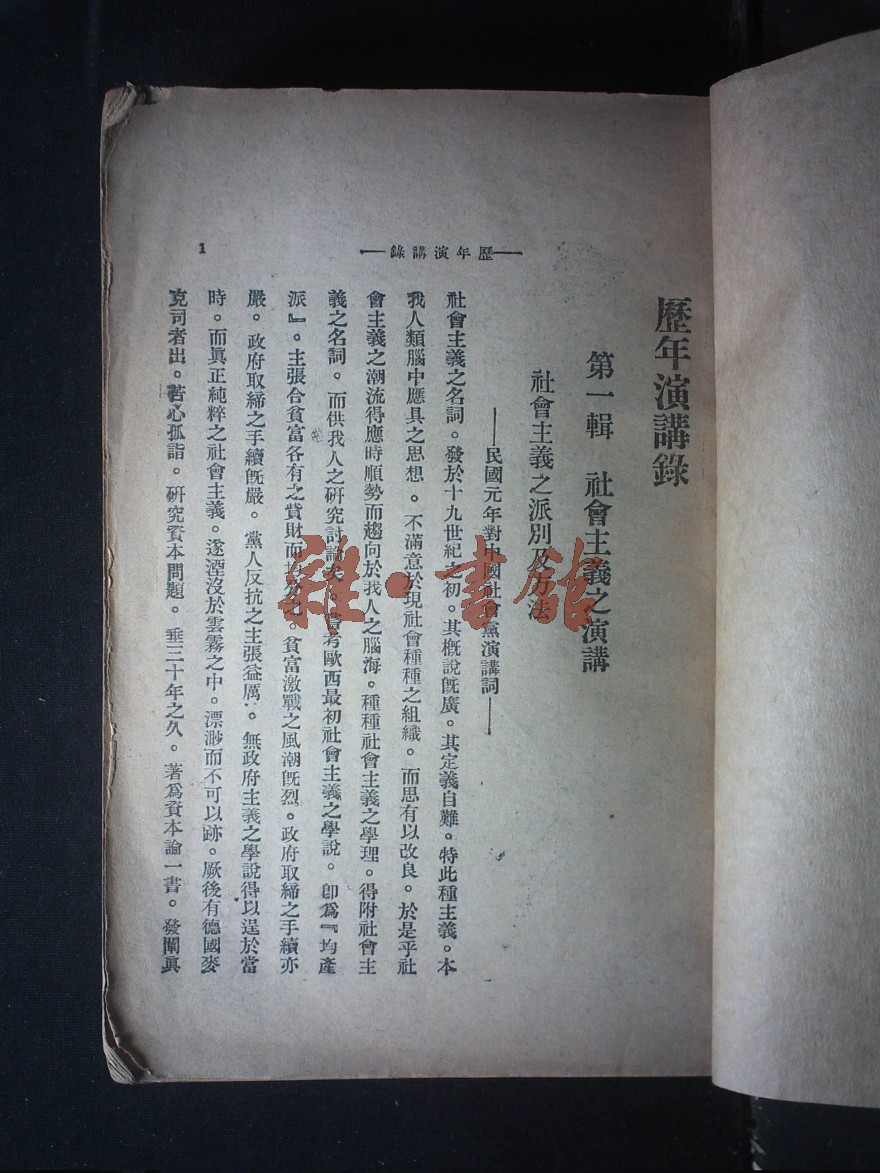 歷年演講錄
第一輯　社會主義之演講
社會主義之派別及方法
——民國元年對中國社會黨演講詞——
社會主義之名詞。發於十九世紀之初。其概說既廣。其定義自難。特此種主義。本
我人類腦中應具之思想。不滿意於現社會種種之組織。而思有以改良。於是乎社
會主義之潮流得應時順勢而趨向於我人之腦海。種種社會主義之學理。得附社會主
義之名詞。而供我人之研究討論矣。嘗考歐西最初社會主義之學說。卽爲『均產
派』。主張合貧富各有之貲財而均分之。貧富激戰之風潮旣烈。政府取締之手續亦
嚴。政府取締之手續旣嚴。黨人反抗之主張益厲。無政府主義之學說得以逞於當
時。而眞正純粹之社會主義。遂湮沒於雲霧之中。漂渺而不可以跡。厥後有德國麥
克司者出。苦心孤詣。研究資本問題。垂三十年之久。著爲資本論一書。發闡眞
——歷年演講錄——
1
雜·書館